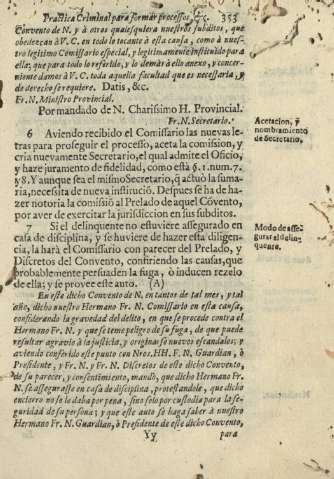 Practica Criminal para formar processos, &c. 353
Convento de N. y à otros qualesquiera nuestros subditos, que
obedezcan à V.C. en todo lo tocante à esta causa, como à nues-
tro legitimo Comissario especial, y legitimamente instituido para
ella; que para todo lo referido, y lo demàs à ello anexo, y concer-
niente damos à V.C. toda aquella facultad que es necessaria, y
de derecho se requiere. Datis, &c.
Fr. N. Ministro Provincial.
Por mandado de N. Charissimo H. Provincial.
Fr. N. Secretario.
6 Aviendo recibido el Comissario las nuevas le-
tras para proseguir el processo, aceta la comission, y
cria nuevamente Secretario, el qual admite el Oficio,
y haze juramento de fidelidad, como està §. 1. num. 7.
y 8. Y aunque sea el mismo Secretario, q̃ actuò la suma-
ria, necessita de nueva instituciõ. Despues se ha de ha-
zer notoria la comissiõ al Prelado de aquel Cõvento,
por aver de exercitar la jurisdiccion en sus subditos.
Acetacion, y
nombramiento
de Secretario,
7 Si el delinquente no estuviere assegurado en
casa de disciplina, y se huviere de hazer esta diligen-
cia, la harà el Comissario con parecer del Prelado, y
Discretos del Convento, confiriendo las causas, que
probablemente persuaden la fuga, ò inducen rezelo
de ella; y se provee este auto. (A)
Modo de asse-
gurar al delin-
quente.
En este dicho Convento de N. en tantos de tal mes, y tal
año, dicho nuestro Hermano Fr. N. Comissario en esta causa,
considerando la gravedad del delito, en que se procede contra el
Hermano Fr. N. y que se teme peligro de su fuga, de que puede
resultar agravio à la justicia, y originarse nuevos escandalos; y
aviendo conferido este punto con Nros. HH. F. N. Guardian, ò
Presidente, y Fr. N. y Fr. N. Discretos de este dicho Convento,
de su parecer, y consentimiento, mandò, que dicho Hermano Fr.
N. se assegurasse en casa de disciplina, protestandole, que dicho
encierro no se le daba por pena, sino solo por custodia para la se-
guridad de su persona; y que este auto se haga saber à nuestro
Hermano Fr. N. Guardian, ò Presidente de este dicho Convento,
Yy para